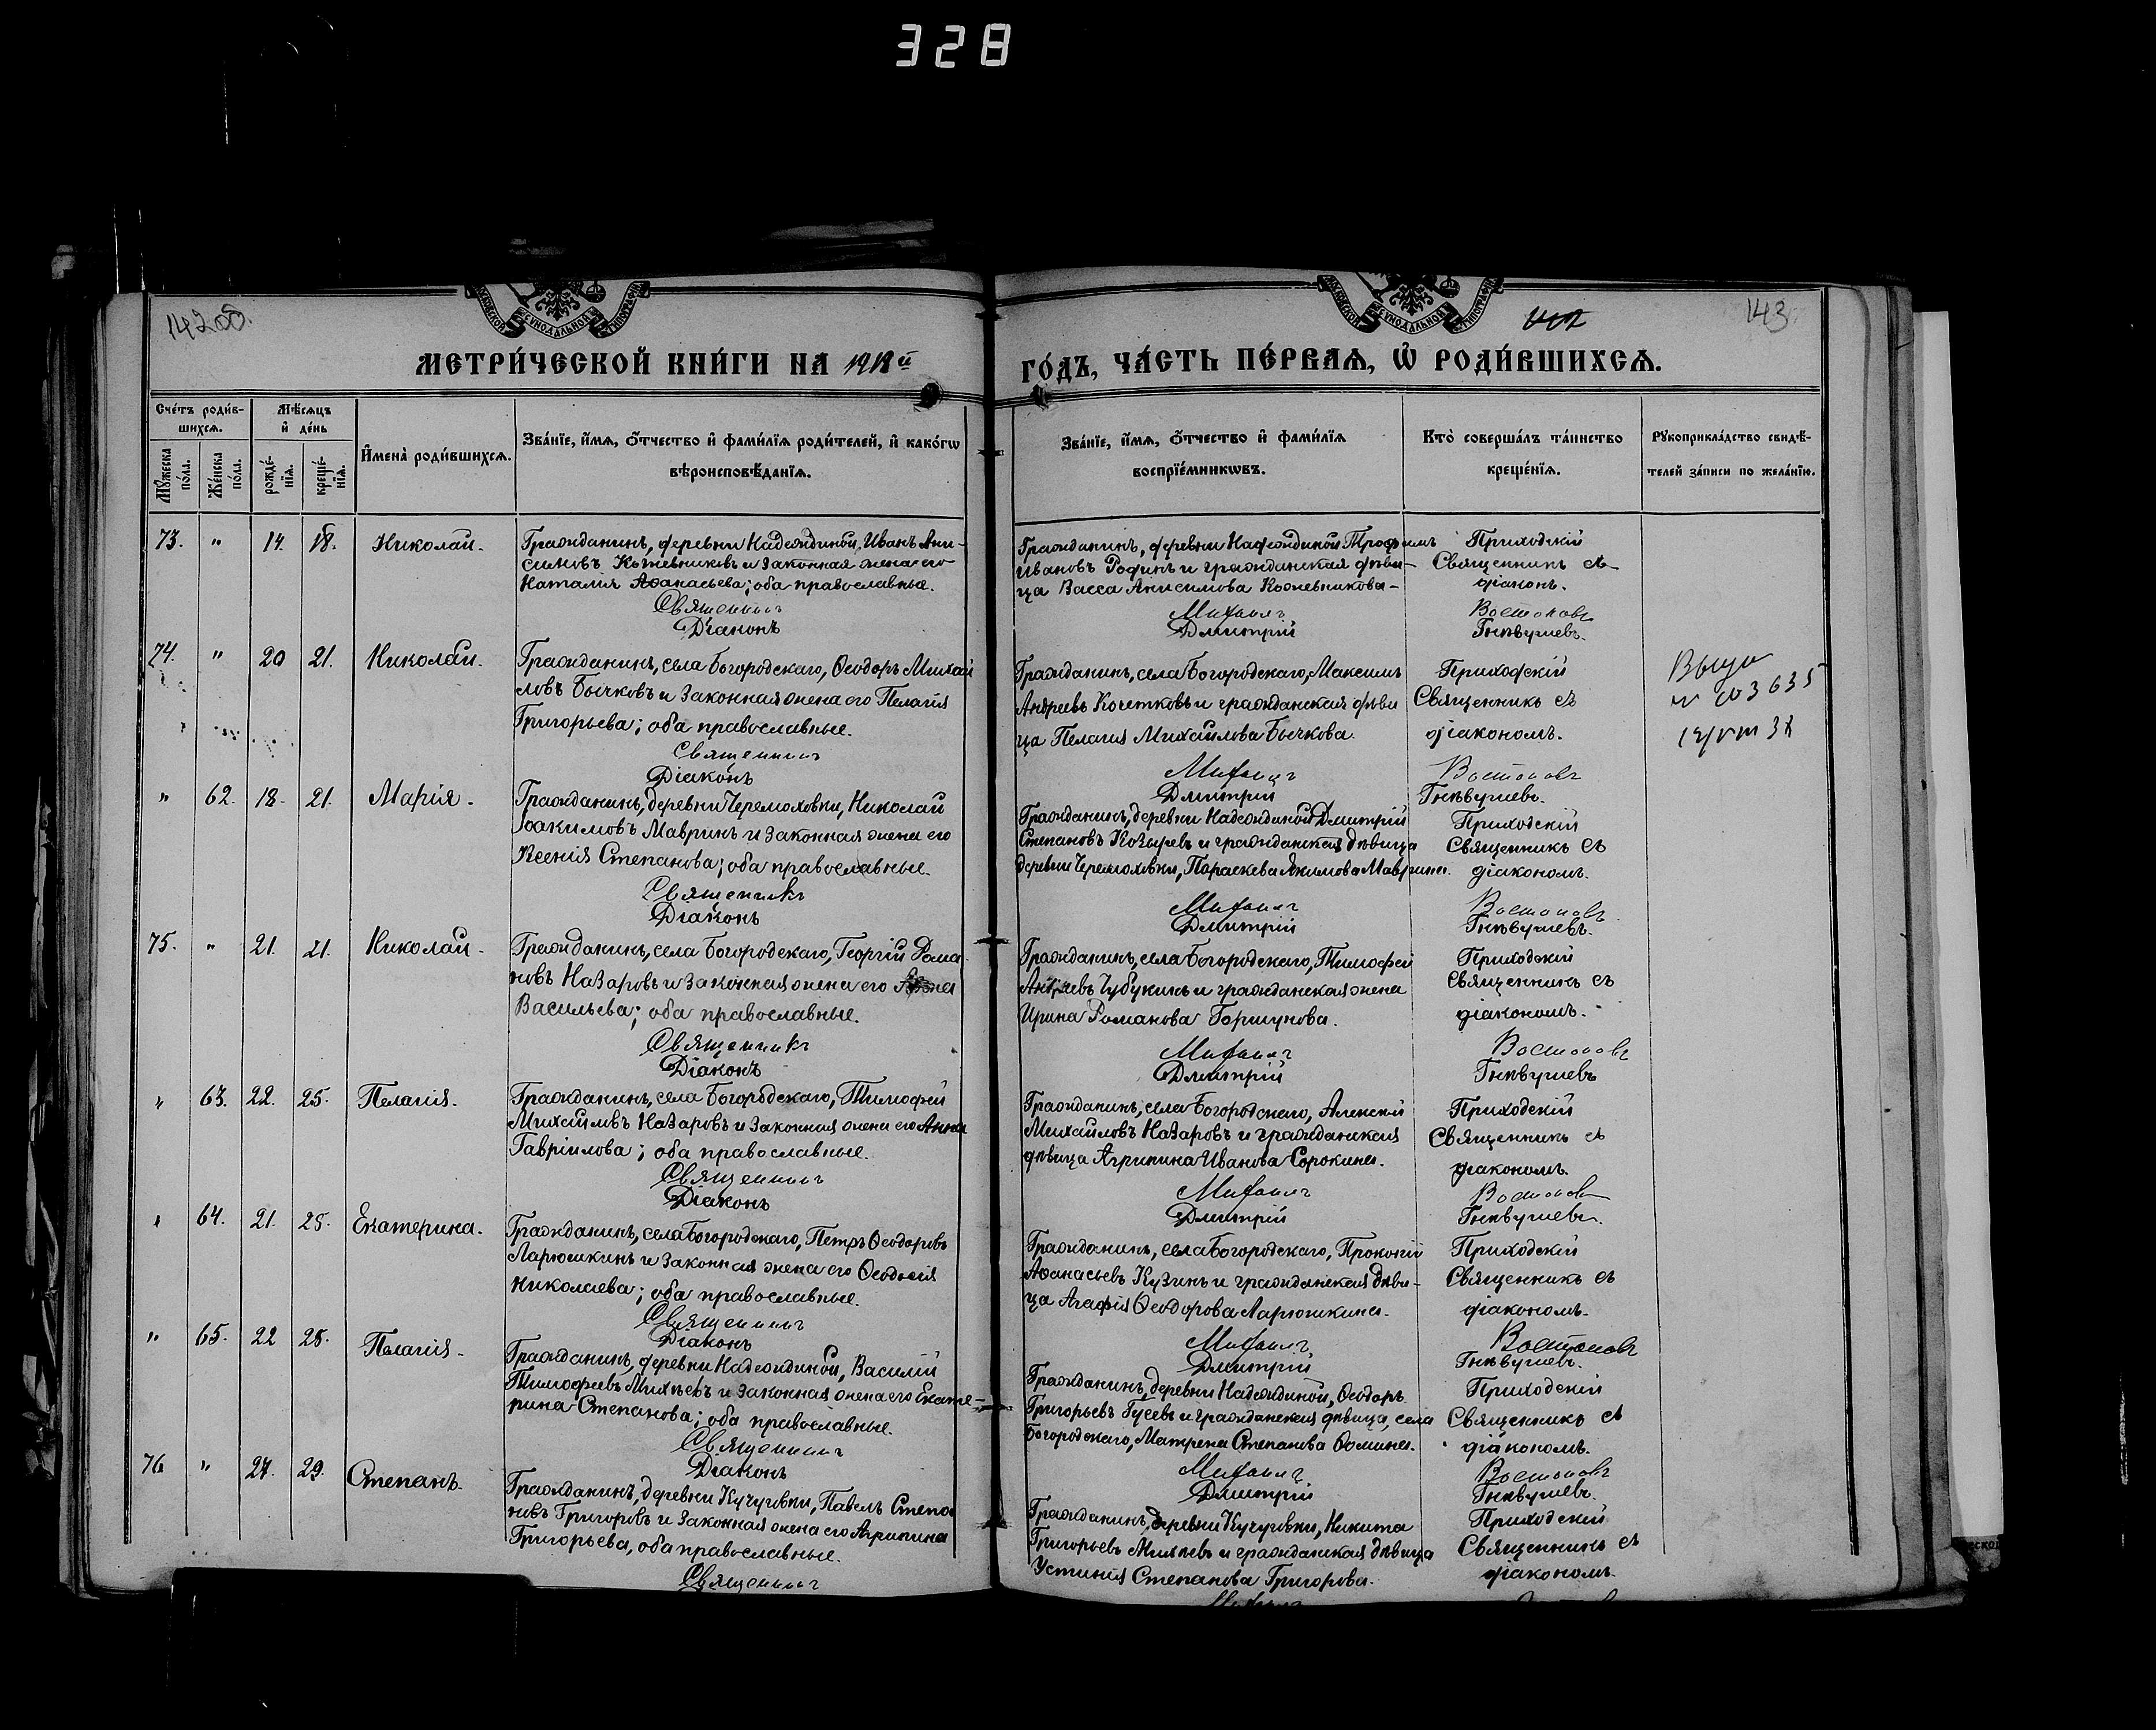 328
142об.
143
МЕТРИ́ЧЕСКОЙ КНИ́ГИ НА 1918й
ГО́ДЪ, ЧА́СТЬ ПЕ́РВАѦ, Ѡ РОДИ́ВШИХСѦ.
Сче́тъ роди́в-
шихсѧ.
Мѣ́сѧцъ
и҆ де́нь
Мꙋ́жеска
по́ла.
Же́нска
по́ла.
рожде́-
нїѧ.
креще́-
нїѧ.
И҆мена̀ роди́вшихсѧ.
Зва́нїе, и҆́мѧ, ѻ҆́тчество и҆ фами́лїѧ роди́телей, и҆ како́гѡ
вѣроисповѣ́данїѧ.
Зва́нїе, и҆́мѧ, ѻ҆́тчество и҆ фами́лїѧ
воспрїе́мникѡвъ.
Кто̀ соверша́лъ та́инство
креще́нїѧ.
Рꙋкоприкла́дство свидѣ́-
телей за́писи по жела́нїю.
73. " 14. 18. Николай.
Гражданинъ, деревни Надеждиной, Иванъ Ани-
симовъ Кожевниковъ и законная жена его
Наталия Аѳанасьева; оба православные.
Священникъ
Діаконъ
Гражданинъ, деревни Надеждиной Трофимъ
Ивановъ Родинъ и гражданская дѣви-
ца Васса Анисимова Кожевникова-
Михаилъ
Дмитрій
Приходскій
Священникъ съ
діакон.
Востоковъ
Гнѣвушевъ.
74. " 20 21. Николай.
Гражданинъ, села Богородскаго, Ѳеодоръ Михай
ловъ Бычковъ и законная жена его Пелагія
Григорьева; оба православные.
Священникъ
Діаконъ
Гражданинъ, села Богородскаго, Максимъ
Андреевъ Кочетковъ и гражданская дѣви
ца Пелагія Михайлова Бычкова.
Михаилъ
Дмитрій
Приходскій
Священникъ съ
діакономъ.
Востоковъ
Гнѣвушевъ.
" 62. 18. 21. Марія.
Гражданинъ, деревни Черемоховки, Николай
Іоакимовъ Мавринъ и законная жена его
Ксенія Степанова; оба православные.
Священникъ
Діаконъ
Гражданинъ, деревни Надеждиной Дмитрій
Степановъ Козыревъ и гражданская дѣвица
деревни Черемоховки, Параскева Акимова Маврина.
Михаилъ
Дмитрій
Приходскій
Священникъ съ
діакономъ.
Востоковъ.
Гнѣвушевъ.
75. " 21. 21. Николай.
Гражданинъ, села Богородскаго, Георгій Рома-
новъ Назаровъ и законная жена его
Васильева; оба православные.
Священникъ
Діаконъ
Гражданинъ, села Богородскаго, Тимофей
Чубукинъ и гражданская жена
Ирина Романова Горшунова.
Михаилъ
Дмитрій
Приходскій
Священникъ съ
діакономъ.
Востоковъ
Гнѣвушевъ
" 63. 22. 25. Пелагия.
Гражданинъ, села Богородскаго, Тимофей
Михайловъ Назаровъ и законная жена его Анна
Гавріилова; оба православные.
Священникъ
Діаконъ
Гражданинъ, села Богородскаго, Алексѣй
Михайловъ Назаровъ и гражданская
дѣвица Агрипина Иванова Сорокина.
Михаилъ
Дмитрій
Приходскій
Священникъ съ
діакономъ.
Востоковъ
Гнѣвушевъ.
" 64. 21. 25. Екатерина.
Гражданинъ, села Богородскаго, Петръ Ѳеодоровъ
Ларюшкинъ и законная жена его Ѳеодосія
Николаева; оба православные.
Священникъ
Діаконъ
Гражданинъ, села Богородскаго, Прокопій
Аѳанасьевъ Кузинъ и гражданская дѣви-
ца Агафія Ѳеодорова Ларюшкина.
Михаилъ
Дмитрій
Приходскій
Священникъ съ
діакономъ.
Востоковъ
Гнѣвушевъ.
" 65. 22 25. Пелагия.
Гражданинъ, деревни Надеждиной, Василій
Тимофеевъ Михѣевъ и законная жена его Екате-
рина Степанова; оба православные.
Священникъ
Діаконъ
Гражданинъ, деревни Надеждиной, Ѳеодоръ
Григорьевъ Гусевъ и гражданская дѣвица, села
Богородскаго, Матрена Степанова Ѳомина.
Михаилъ
Дмитрій
Приходскій
Священникъ съ
діакономъ.
Востоковъ
Гнѣвушевъ.
76 " 27. 29. Степанъ.
Гражданинъ, деревни Кучуговки, Павелъ Степа
новъ Григоровъ и законная жена его Агрипина
Григорьева, оба православные.
Священникъ
Гражданинъ, деревни Кучуговки, Никита
Григорьевъ Михѣевъ и гражданская дѣвица
Устинія Степанова Григорова.
Михаилъ
Приходскій
Священникъ съ
діакономъ.